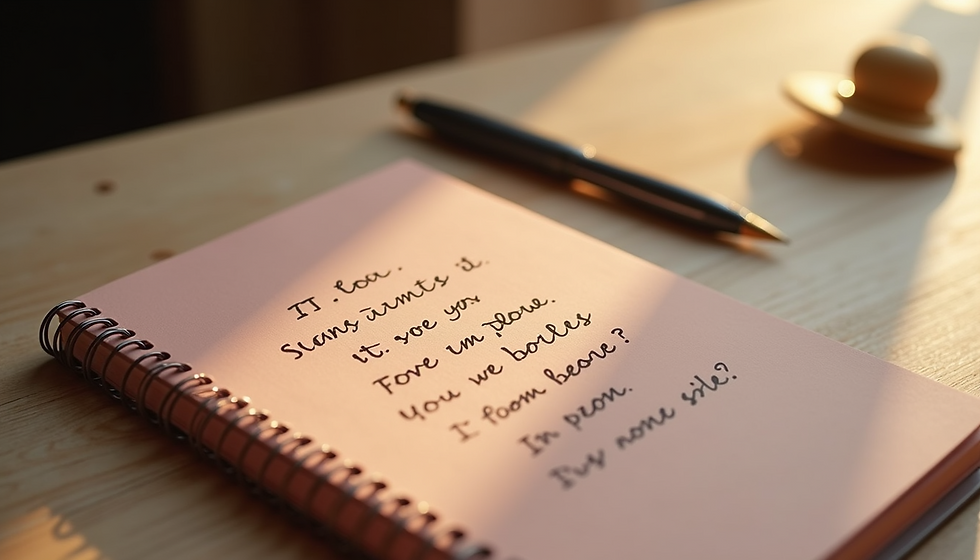 IT. loa.
Slans iumts il.
it. voe yor
Fore im ploure.
You we borles
I foom beare?
In peon.
I'us none sile?